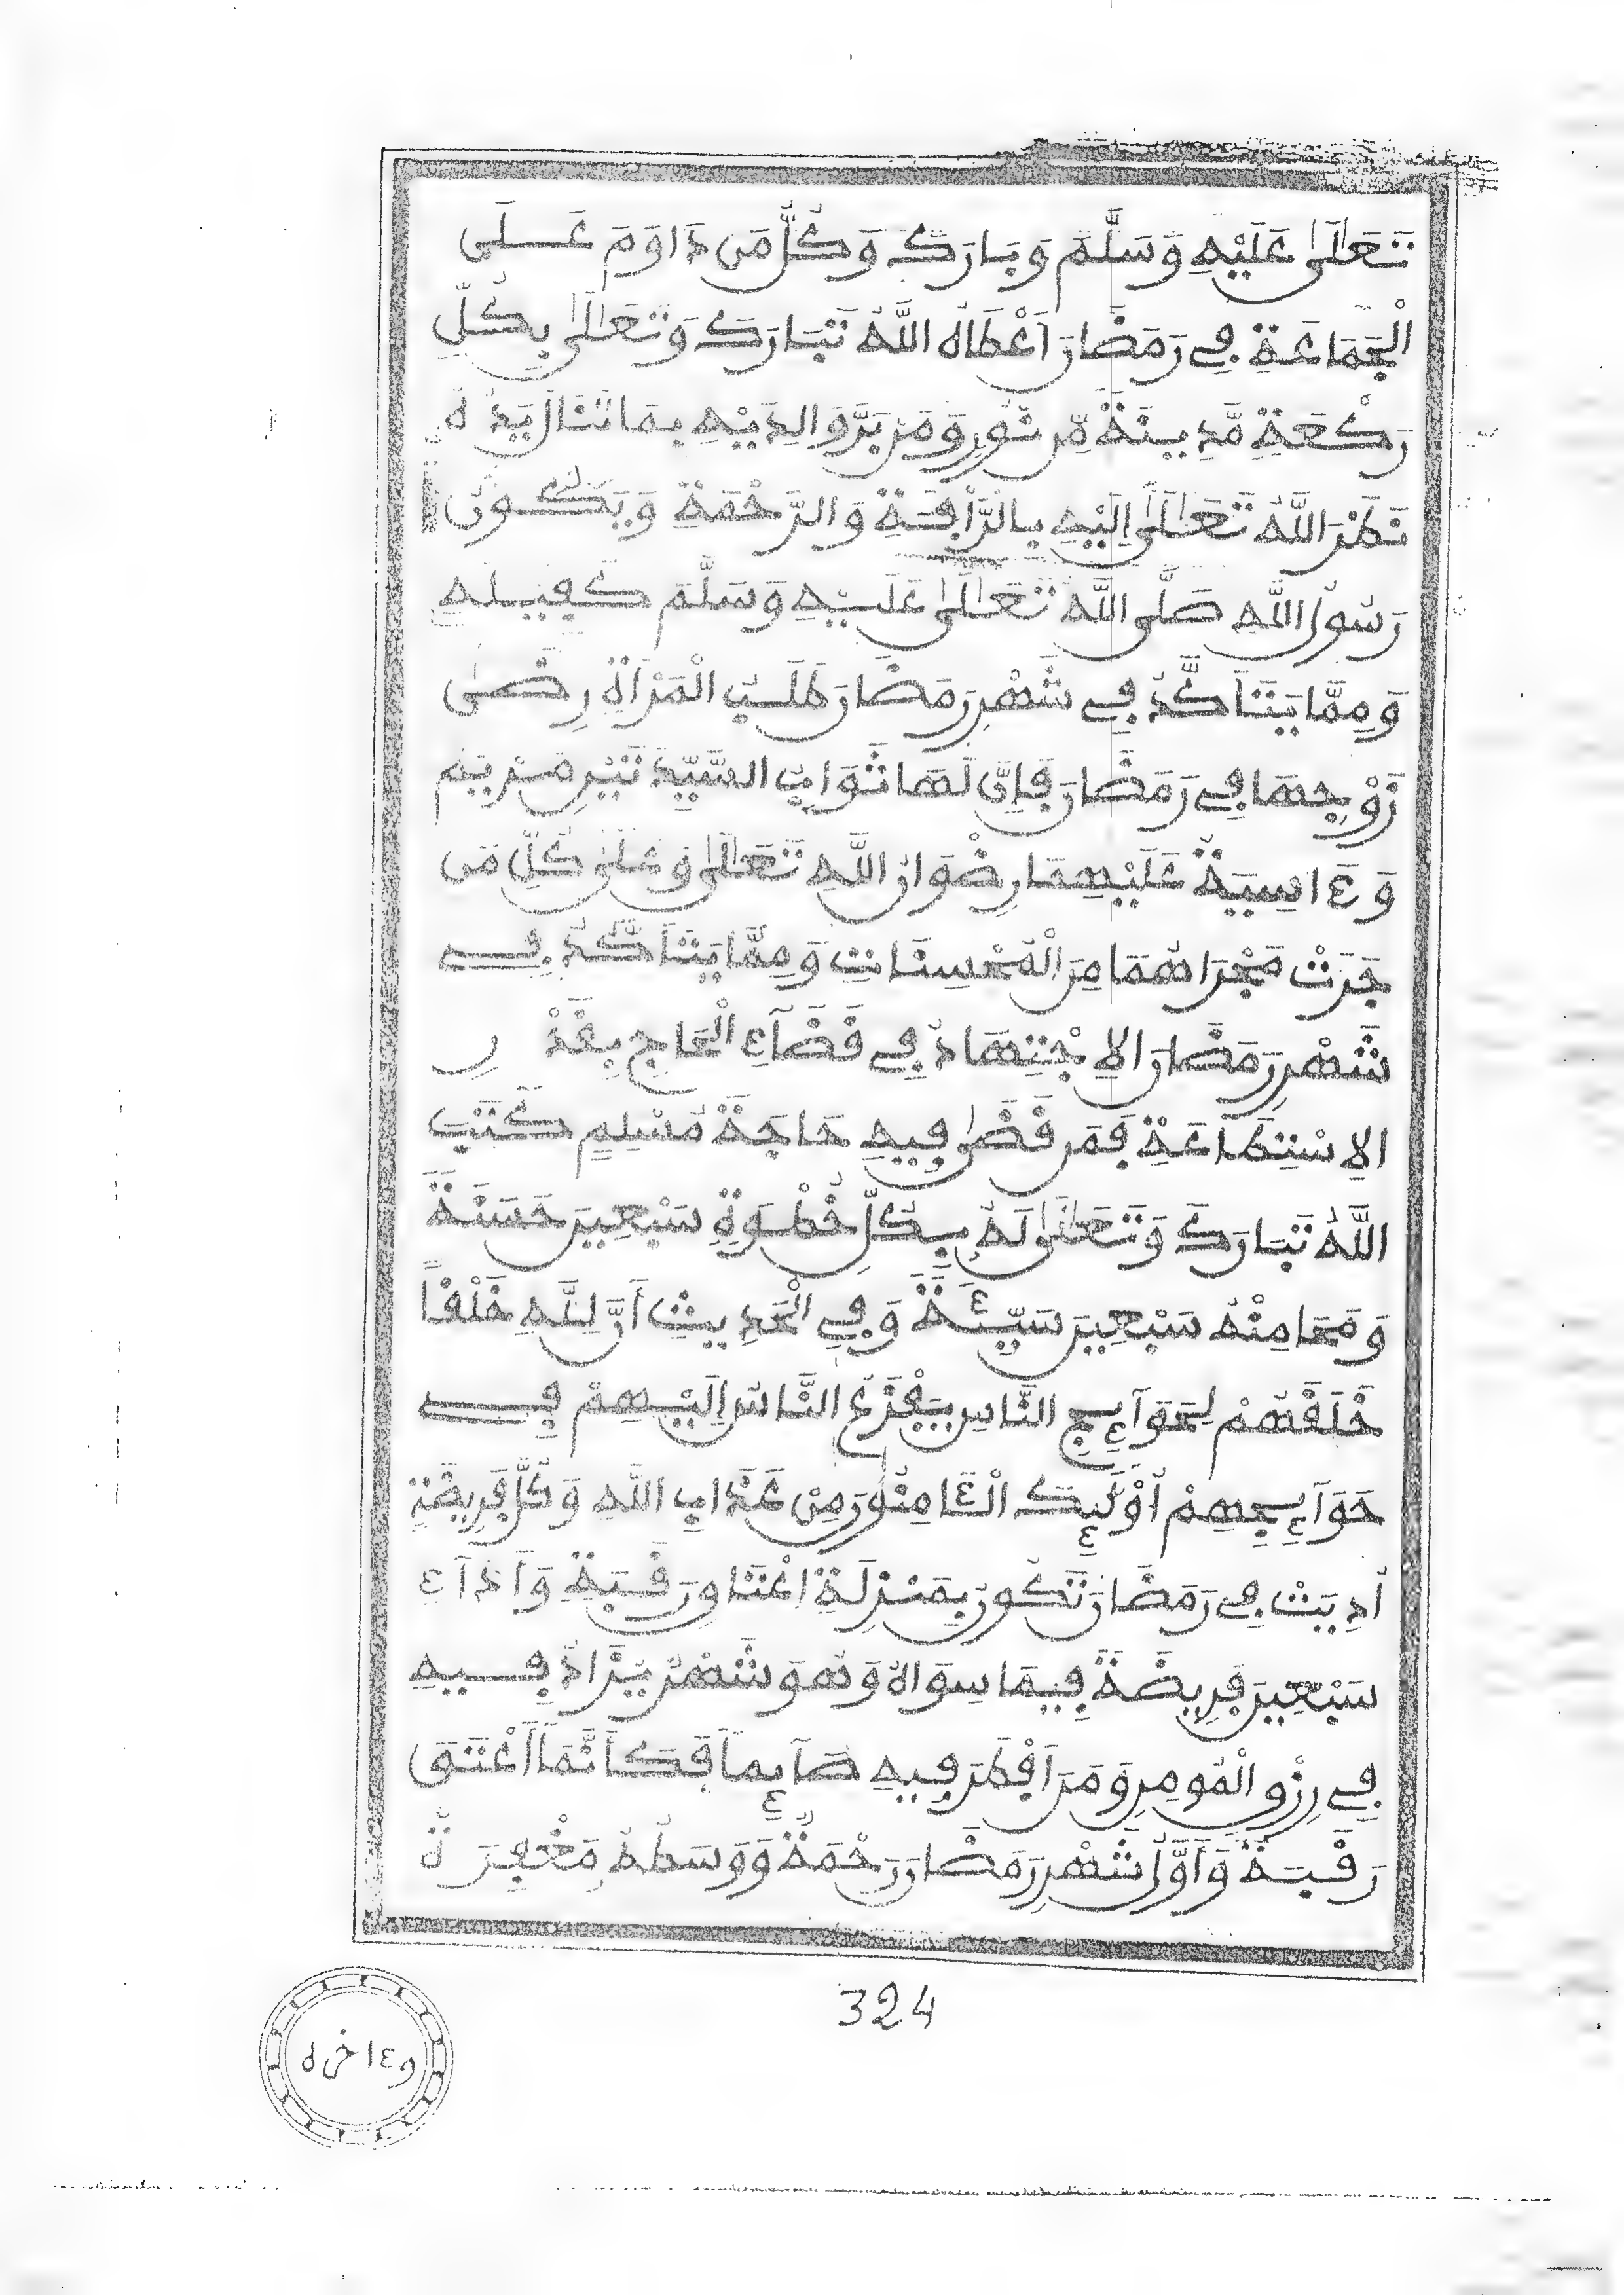 تَعَالَىٰ عَلَيْهِ وَسَلَّمَ وَبَارَكَ وَكُلُّ مَن دَاوَمَ عَلَى
الْجَمَاعَةِ فِي رَمَضَانَ أَعْطَاهُ اللَّهُ تَبَارَكَ وَتَعَالَىٰ بِكُلِّ
رَكْعَةٍ مَّدِينَةً مِّن نُّورٍ وَمَن بَرَّ وَالِدَيْهِ بِمَا تَنَالُ يَدُهُ
نَظَرَ اللَّهُ تَعَالَىٰ إِلَيْهِ بِالرَّأْفَةِ وَالرَّحْمَةِ وَيَكُونُ
رَسُولُ اللَّهِ صَلَّى اللَّهُ تَعَالَىٰ عَلَيْهِ وَسَلَّمَ كَفِيلَهُ
وَمِمَّا يَتَأَكَّدُ فِي شَهْرِ رَمَضَانَ طَلَبُ الْمَرْأَةِ رِضَىٰ
زَوْجِهَا فِي رَمَضَانَ فَإِنَّ لَهَا ثَوَابَ السَّيِّدَتَيْنِ مَرْيَمَ
وَءَاسِيَةَ عَلَيْهِمَا رِضْوَانُ اللَّهِ تَعَالَىٰ وَعَلَىٰ كُلِّ مَن
جَرَتْ مَجْرَاهُمَا مِنَ الْمُحْسِنَاتِ وَمِمَّا يَتَأَكَّدُ فِي
شَهْرِ رَمَضَانَ الِاجْتِهَادُ فِي قَضَآءِ الْحَاجِ بِقَدْرِ
الِاسْتِطَاعَةِ فَمَن قَضَىٰ فِيهِ حَاجَةَ مُسْلِمٍ كَتَبَ
اللَّهُ تَبَارَكَ وَتَعَالَىٰ لَهُ بِكُلِّ خُطْوَةٍ سَبْعِينَ حَسَنَةً
وَمَحَا مِنْهُ سَبْعِينَ سَيِّئَةً وَفِي الْحَدِيثِ أَنَّ لِلَّهِ خَلْقًا
خَلَقَهُمْ لِحَوَآئِجِ النَّاسِ يَفْزَعُ النَّاسُ إِلَيْهِمْ فِي
حَوَآئِجِهِمْ أُوْلَٰئِكَ الْـَٔامِنُونَ مِنْ عَذَابِ اللَّهِ وَكُلُّ فَرِيضَةٍ
أُدِيَتْ فِي رَمَضَانَ تَكُونُ بِمَنزِلَةِ اعْتَاقِ رَقَبَةٍ وَأَدَآءِ
سَبْعِينَ فَرِيضَةً فِيمَا سِوَاهُ وَهُوَ شَهْرٌ يُزَادُ فِيهِ
فِي رِزْقِ الْمُومِنِ وَمَنَ أَفْطَرَ فِيهِ صَآئِمًا فَكَأَنَّمَا أَعْتَقَ
رَقَبَةً وَأَوَّلُ شَهْرِ رَمَضَانَ رَحْمَةٌ وَوَسَطُهُ مَغْفِرَةٌ
324